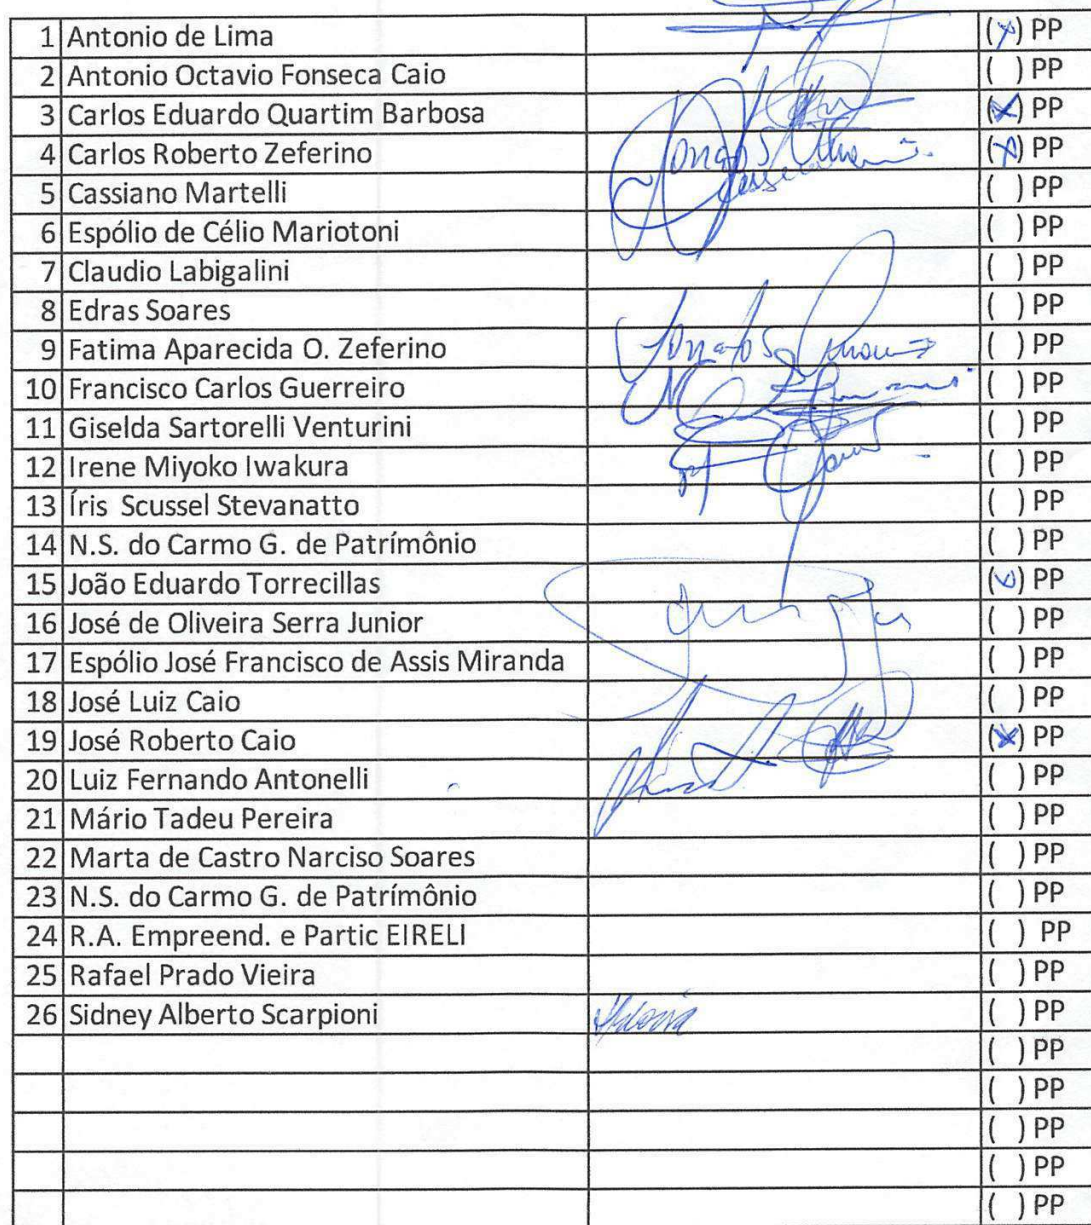 1 Antonio de Lima (x) PP
2 Antonio Octavio Fonseca Caio ( ) PP
3 Carlos Eduardo Quartim Barbosa (x) PP
4 Carlos Roberto Zeferino (x) PP
5 Cassiano Martelli ( ) PP
6 Espólio de Célio Mariotoni ( ) PP
7 Claudio Labigalini ( ) PP
8 Edras Soares ( ) PP
9 Fatima Aparecida O. Zeferino ( ) PP
10 Francisco Carlos Guerreiro ( ) PP
11 Giselda Sartorelli Venturini ( ) PP
12 Irene Miyoko Iwakura ( ) PP
13 Íris Scussel Stevanatto ( ) PP
14 N.S. do Carmo G. de Patrímônio ( ) PP
15 João Eduardo Torrecillas (x) PP
16 José de Oliveira Serra Junior ( ) PP
17 Espólio José Francisco de Assis Miranda ( ) PP
18 José Luiz Caio ( ) PP
19 José Roberto Caio (x) PP
20 Luiz Fernando Antonelli ( ) PP
21 Mário Tadeu Pereira ( ) PP
22 Marta de Castro Narciso Soares ( ) PP
23 N.S. do Carmo G. de Patrímônio ( ) PP
24 R.A. Empreend. e Partic EIRELI ( ) PP
25 Rafael Prado Vieira ( ) PP
26 Sidney Alberto Scarpioni ( ) PP
( ) PP
( ) PP
( ) PP
( ) PP
( ) PP